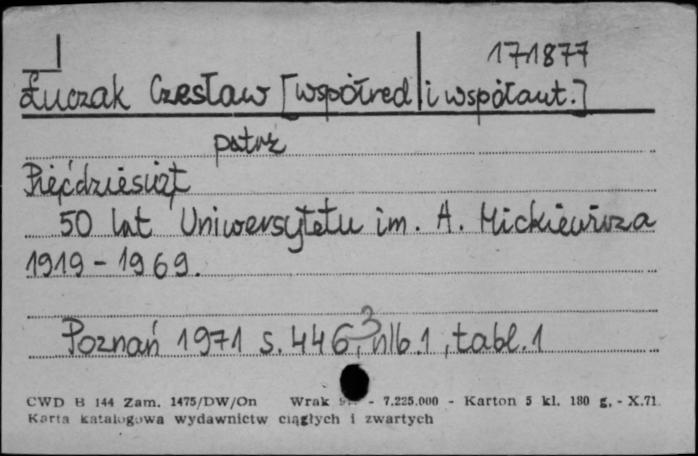 171877
Łuczak Czesław [współred i współaut.]
patrz
Pięćdziesiąt
50 lat Uniwersytetu im. A. Mickiewicza
1919 - 1969.
Poznań 1971 s. 446, 3 nlb. 1, tabl. 1
CWD B 144 Zam. 1475/DW/On Wrak - 7.225.000 - Karton 5 kl. 180 g. - X.71.
Karta katalogowa wydawnictw ciągłych i zwartych